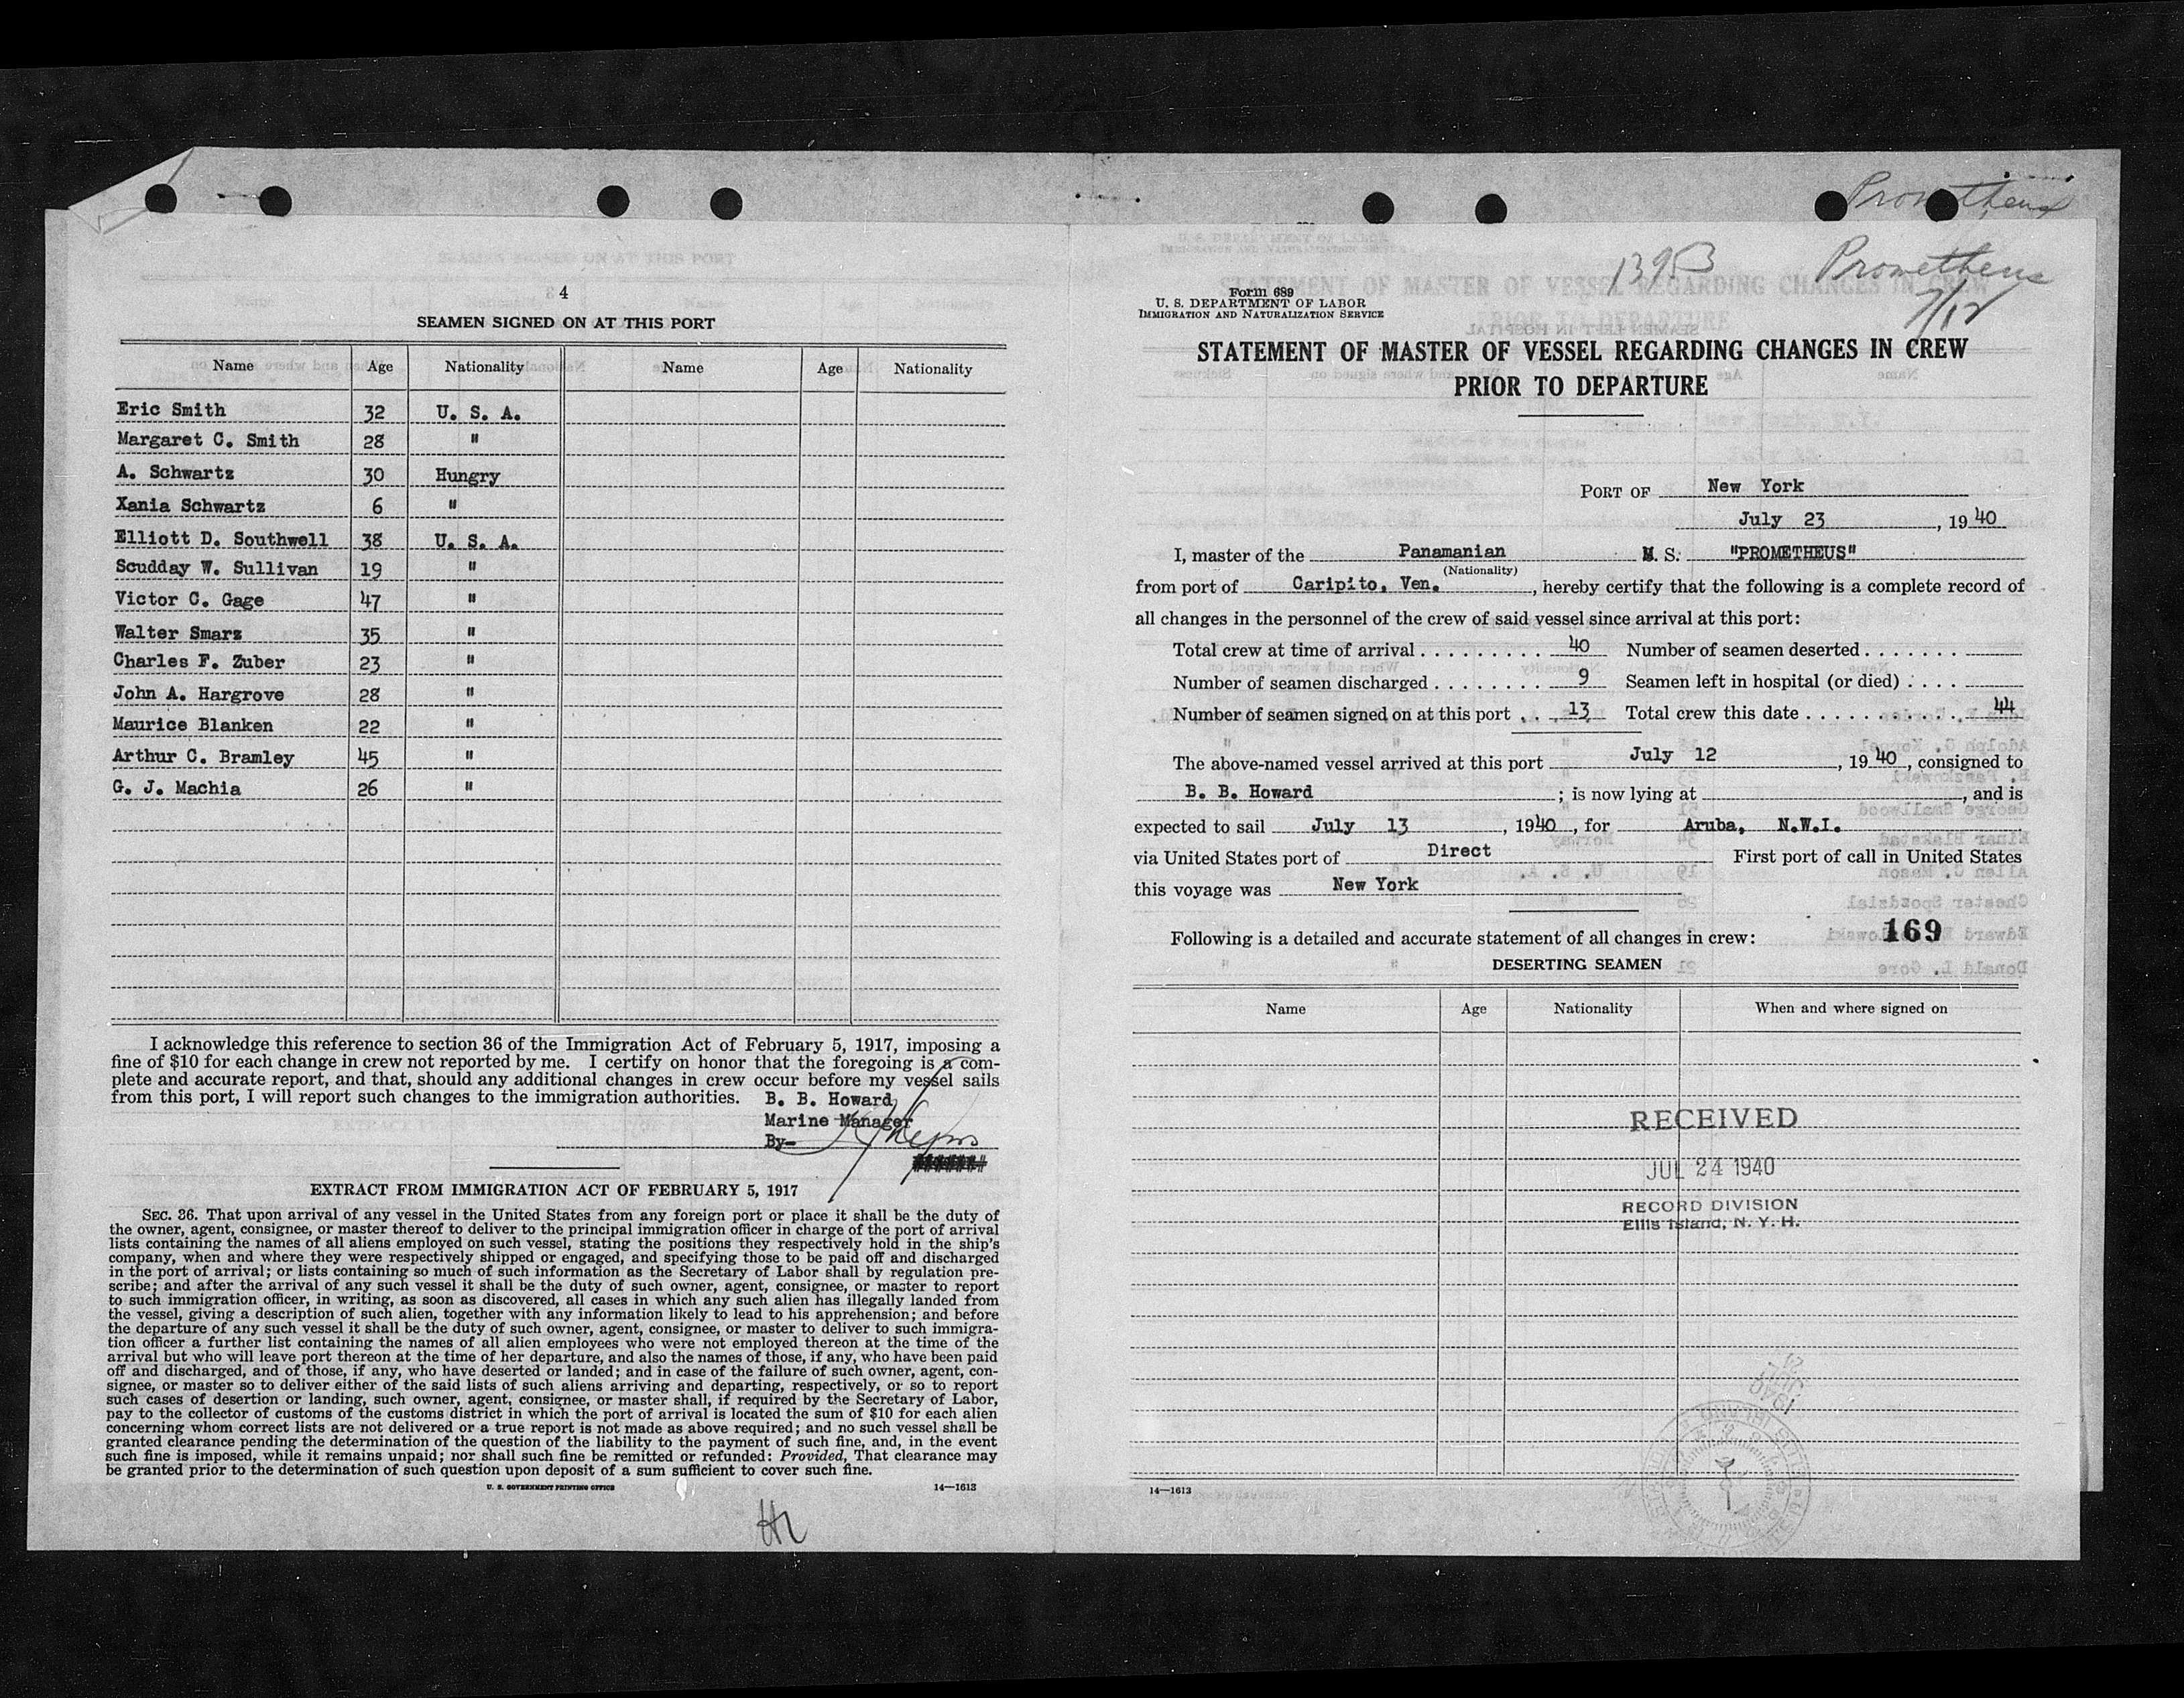 4
SEAMEN SIGNED ON AT THIS PORT
Name Age Nationality Name Age Nationality
Eric Smith 32 U. S. A.
Margaret C. Smith 28 "
A. Schwartz 30 Hungry
Xania Schwartz 6 "
Elliott D. Southwell 38 U. S. A.
Scudday W. Sullivan 19 "
Victor C. Gage 47 "
Walter Smarz 35 "
Charles F. Zuber 23 "
John A. Hargrove 28 "
Maurice Blanken 22 "
Arthur C. Bramley 45 "
G. J. Machia 26 "
I acknowledge this reference to section 36 of the Immigration Act of February 5, 1917, imposing a
fine of $10 for each change in crew not reported by me. I certify on honor that the foregoing is a com-
plete and accurate report, and that, should any additional changes in crew occur before my vessel sails
from this port, I will report such changes to the immigration authorities. B. B. Howard
Marine Manager
By-
EXTRACT FROM IMMIGRATION ACT OF FEBRUARY 5, 1917
SEC. 36. That upon arrival of any vessel in the United States from any foreign port or place it shall be the duty of
the owner, agent, consignee, or master thereof to deliver to the principal immigration officer in charge of the port of arrival
lists containing the names of all aliens employed on such vessel, stating the positions they respectively hold in the ship's
company, when and where they were respectively shipped or engaged, and specifying those to be paid off and discharged
in the port of arrival; or lists containing so much of such information as the Secretary of Labor shall by regulation pre-
scribe; and after the arrival of any such vessel it shall be the duty of such owner, agent, consignee, or master to report
to such immigration officer, in writing, as soon as discovered, all cases in which any such alien has illegally landed from
the vessel, giving a description of such alien, together with any information likely to lead to his apprehension; and before
the departure of any such vessel it shall be the duty of such owner, agent, consignee, or master to deliver to such immigra-
tion officer a further list containing the names of all alien employees who were not employed thereon at the time of the
arrival but who will leave port thereon at the time of her departure, and also the names of those, if any, who have been paid
off and discharged, and of those, if any, who have deserted or landed; and in case of the failure of such owner, agent, con-
signee, or master so to deliver either of the said lists of such aliens arriving and departing, respectively, or so to report
such cases of desertion or landing, such owner, agent, consignee, or master shall, if required by the Secretary of Labor,
pay to the collector of customs of the customs district in which the port of arrival is located the sum of $10 for each alien
concerning whom correct lists are not delivered or a true report is not made as above required; and no such vessel shall be
granted clearance pending the determination of the question of the liability to the payment of such fine, and, in the event
such fine is imposed, while it remains unpaid; nor shall such fine be remitted or refunded: Provided, That clearance may
be granted prior to the determination of such question upon deposit of a sum sufficient to cover such fine.
U. S. GOVERNMENT PRINTING OFFICE 14—1613
Prometheus
1395 Prometheus
7/12
Form 689
U. S. DEPARTMENT OF LABOR
IMMIGRATION AND NATURALIZATION SERVICE
STATEMENT OF MASTER OF VESSEL REGARDING CHANGES IN CREW
PRIOR TO DEPARTURE
PORT OF New York
July 23, 1940
I, master of the Panamanian M. S. "PROMETHEUS"
(Nationality)
from port of Caripito, Ven., hereby certify that the following is a complete record of
all changes in the personnel of the crew of said vessel since arrival at this port:
Total crew at time of arrival . . . . . . . . . . 40 Number of seamen deserted . . . . . . .
Number of seamen discharged . . . . . . . . 9 Seamen left in hospital (or died) . . . .
Number of seamen signed on at this port . . . 13 Total crew this date . . . . . . . . . . . . 44
The above-named vessel arrived at this port July 12, 1940, consigned to
B. B. Howard; is now lying at , and is
expected to sail July 13, 1940, for Aruba, N.W.I.
via United States port of Direct First port of call in United States
this voyage was New York
169
Following is a detailed and accurate statement of all changes in crew:
DESERTING SEAMEN
Name Age Nationality When and where signed on
RECEIVED
JUL 24 1940
RECORD DIVISION
Ellis Island, N. Y. H.
14—1613